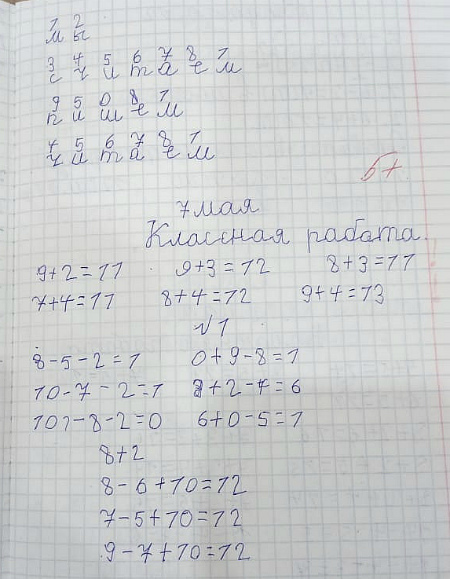 1 2
м ы
3 4 5 6 7 8 1
с ч и т а е м
9 5 0 8 1
п и ш е м
4 5 6 7 8 1
ч и т а е м
5+
7 мая
Классная работа.
9+2=11 9+3=12 8+3=11
7+4=11 8+4=12 9+4=13
√1
8-5-2=1 0+9-8=1
10-7-2=1 8+2-4=6
10-8-2=0 6+0-5=1
8+2
8-6+10=12
7-5+10=12
9-7+10=12